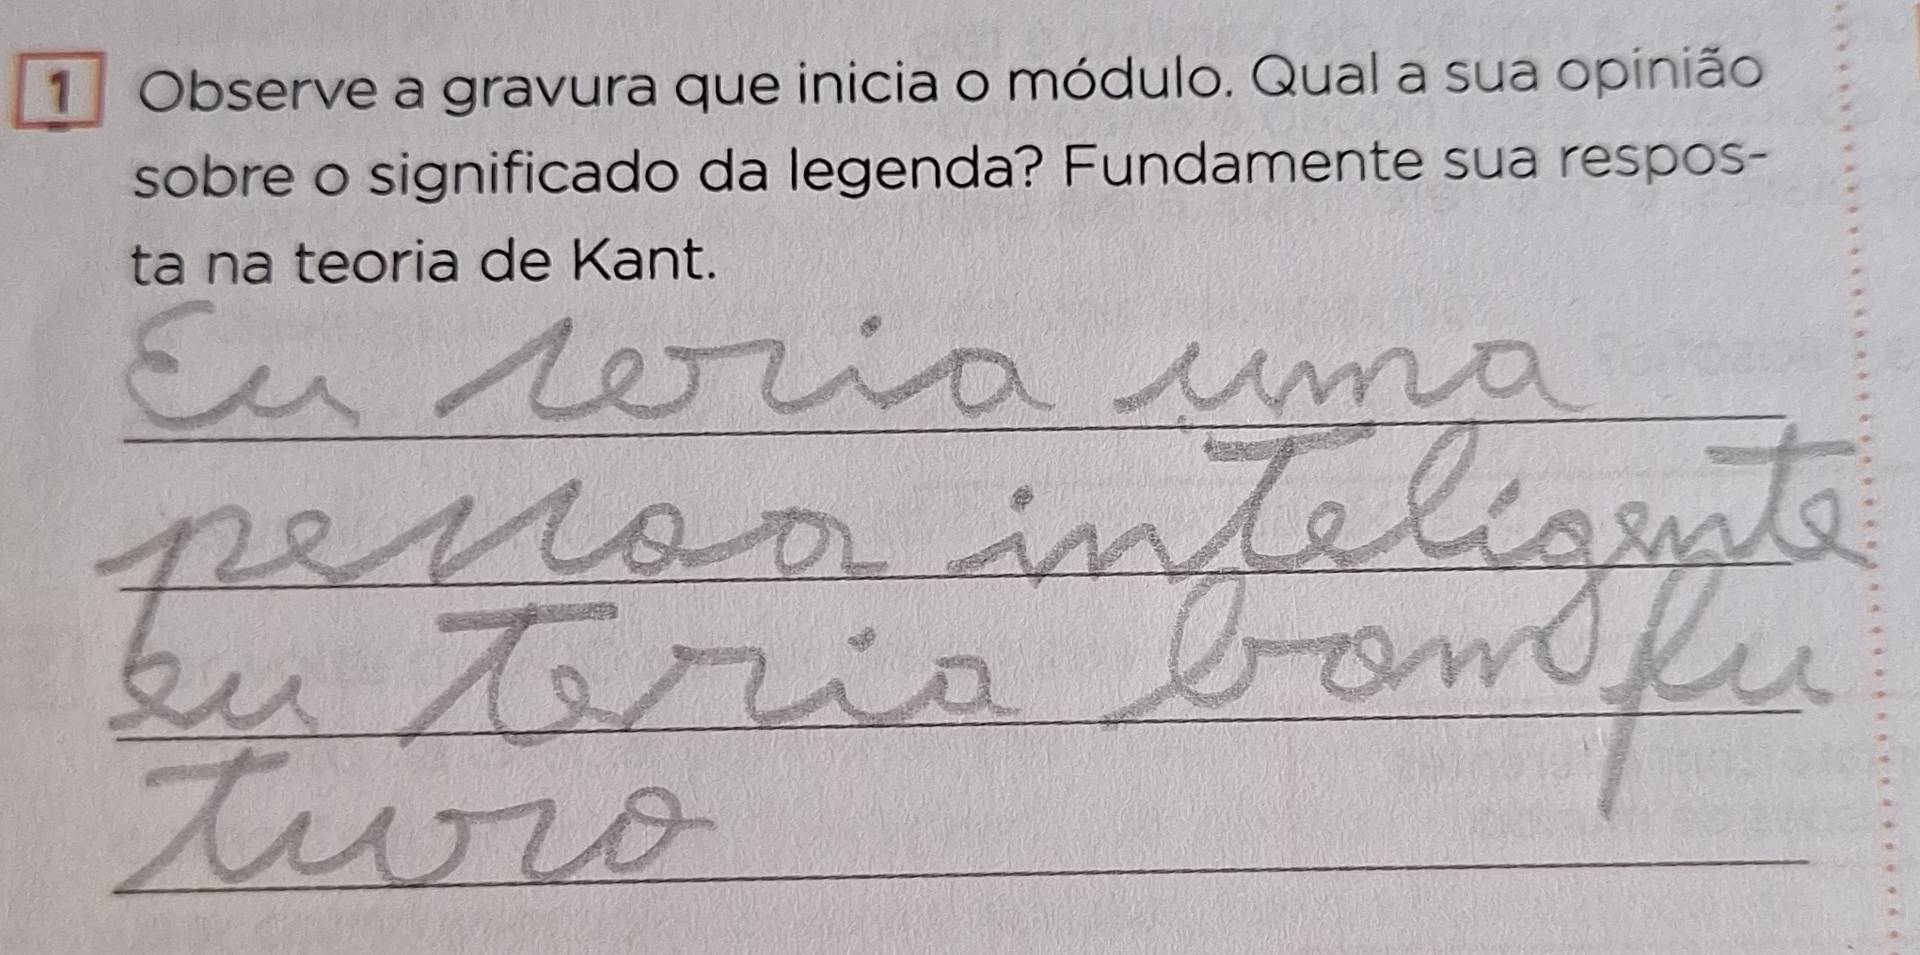 1 Observe a gravura que inicia o módulo. Qual a sua opinião
sobre o significado da legenda? Fundamente sua respos-
ta na teoria de Kant.
Eu seria uma
pessoa inteligente
eu teria bom fu
turo